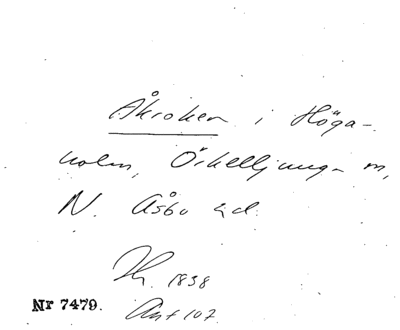 Åkroken i Höga-
holm, Örkelljunga m,
N. Åsbo hd.
1838
Nr 7479. Ant 107